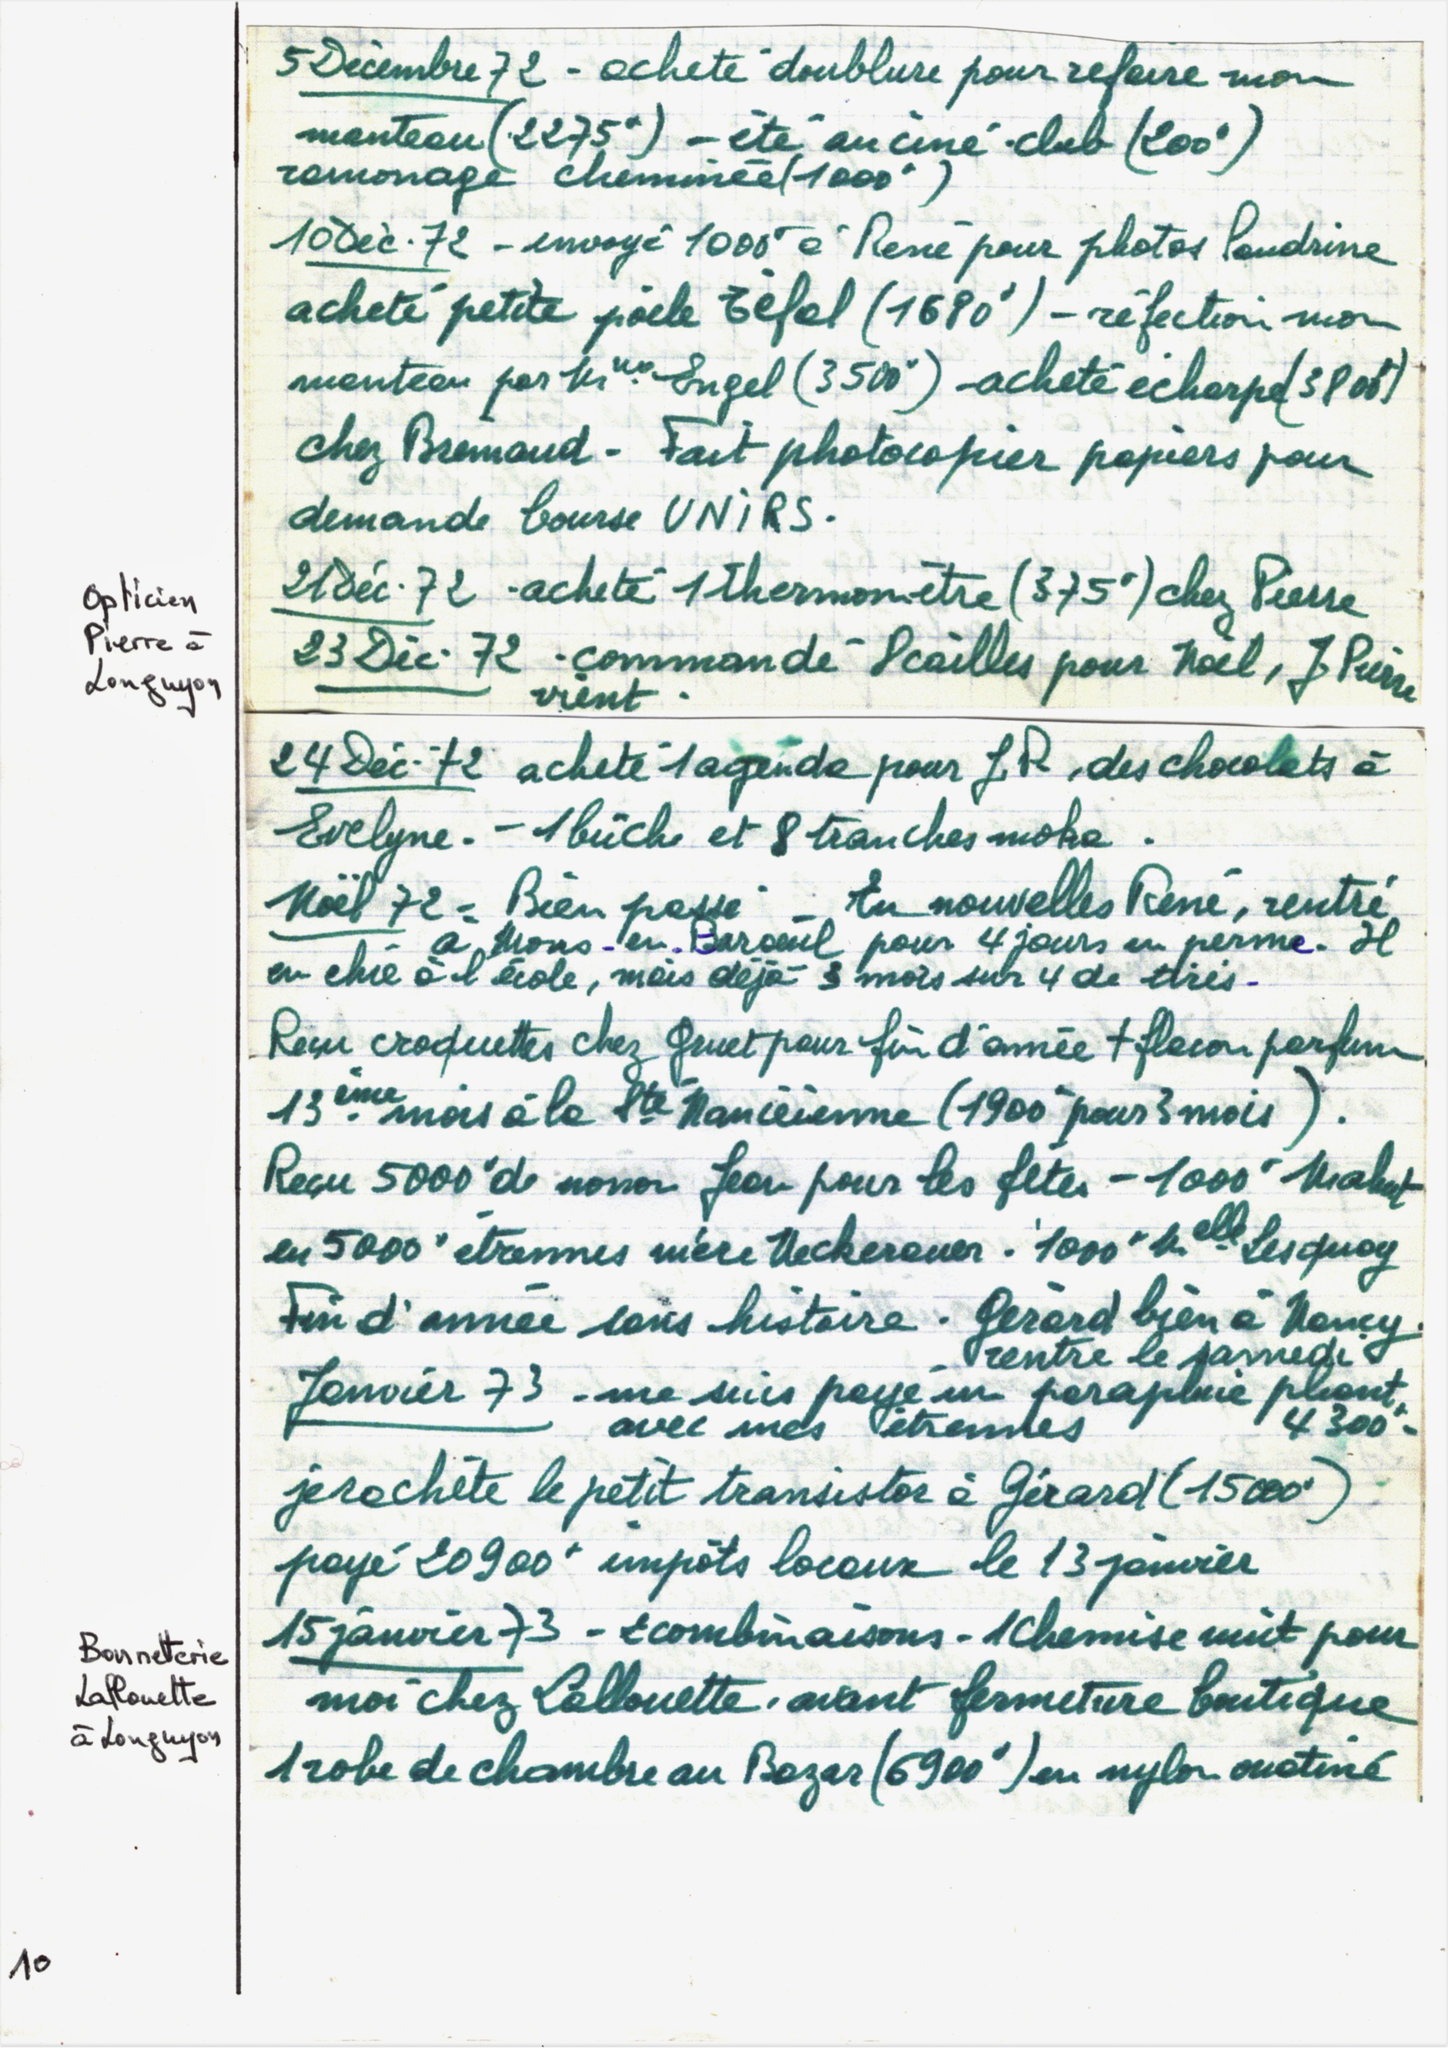 5 Décembre 72 - acheté doublure pour refaire mon
manteau (2275°) - été au ciné-club (200°)
ramonage cheminée (1000°)
10 Déc. 72 - envoyé 1000° à René pour photos Sandrine
acheté petite poêle Téfal (1690°) - réfection mon
manteau par Mme Engel (3500°) - acheté écharpe (3800°)
chez Bremaud - Fait photocopier papiers pour
demande bourse UNIRS.
Opticien
Pierre à
Longuyon
21 Déc. 72 - acheté 1 thermomètre (375°) chez Pierre
23 Déc. 72 - commandé 8 cailles pour Noël, J. Pierre
vient.
24 Déc. 72 acheté 1 agenda pour J.P., des chocolats à
Evelyne. - 1 bûche et 8 tranches moka.
Noël 72 = Bien passé - Eu nouvelles René, rentré
à Mons-en-Baroeul pour 4 jours en perme. Il
en chie à l'école, mais déjà 3 mois sur 4 de tirés.
Reçu croquettes chez Gruet pour fin d'année + flacon parfum
13ème mois à la Sté Nancéienne (1900° pour 3 mois).
Reçu 5000° de nonon Jean pour les fêtes - 1000°
eu 5000° étrennes mère Neckerauer. 1000° Melle Lesquoy
Fin d'année sans histoire. Gérard bien à Nancy.
rentre le samedi
Janvier 73 - me suis payé un parapluie pliant
avec mes étrennes 4300°-
je rachète le petit transistor à Gérard (15000°)
payé 20900° impôts locaux le 13 janvier
Bonneterie
Lallouette
à Longuyon
15 janvier 73 - 2 combinaisons - 1 chemise nuit pour
moi chez Lallouette, avant fermeture boutique
1 robe de chambre au Bazar (6900°) en nylon ouatiné
10